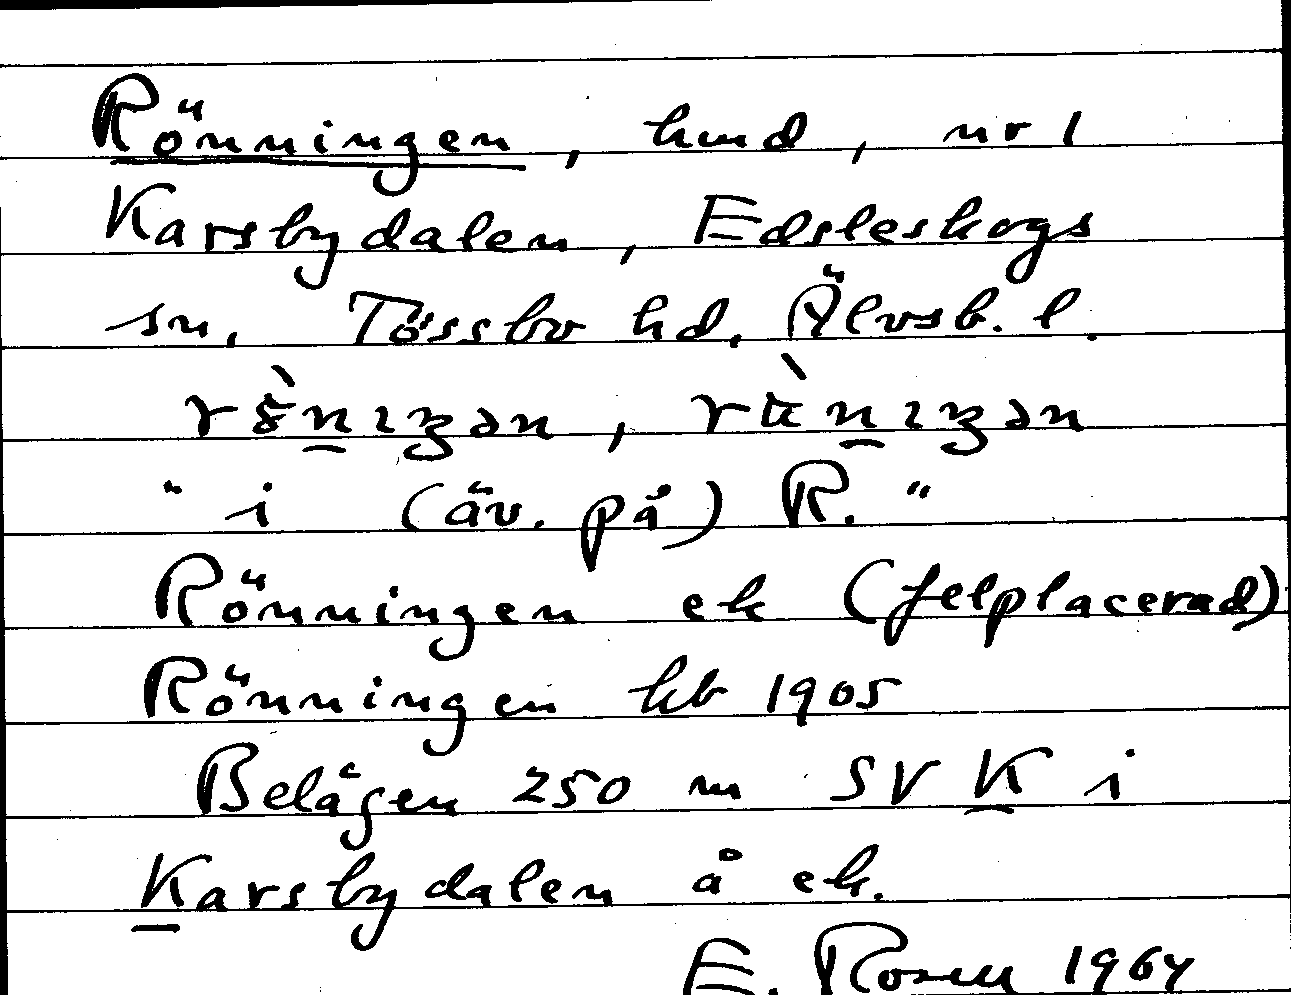 Rönningen, hmd, nr 1
Karsbydalen, Edsleskogs
sn, Tössbo hd. Älvsb. l.
"i (äv. på) R."
Rönningen ek (felplacerad)
Rönningen hb 1905
Belägen 250 m SV K i
Karsbydalen å ek.
E. Rosen 1964